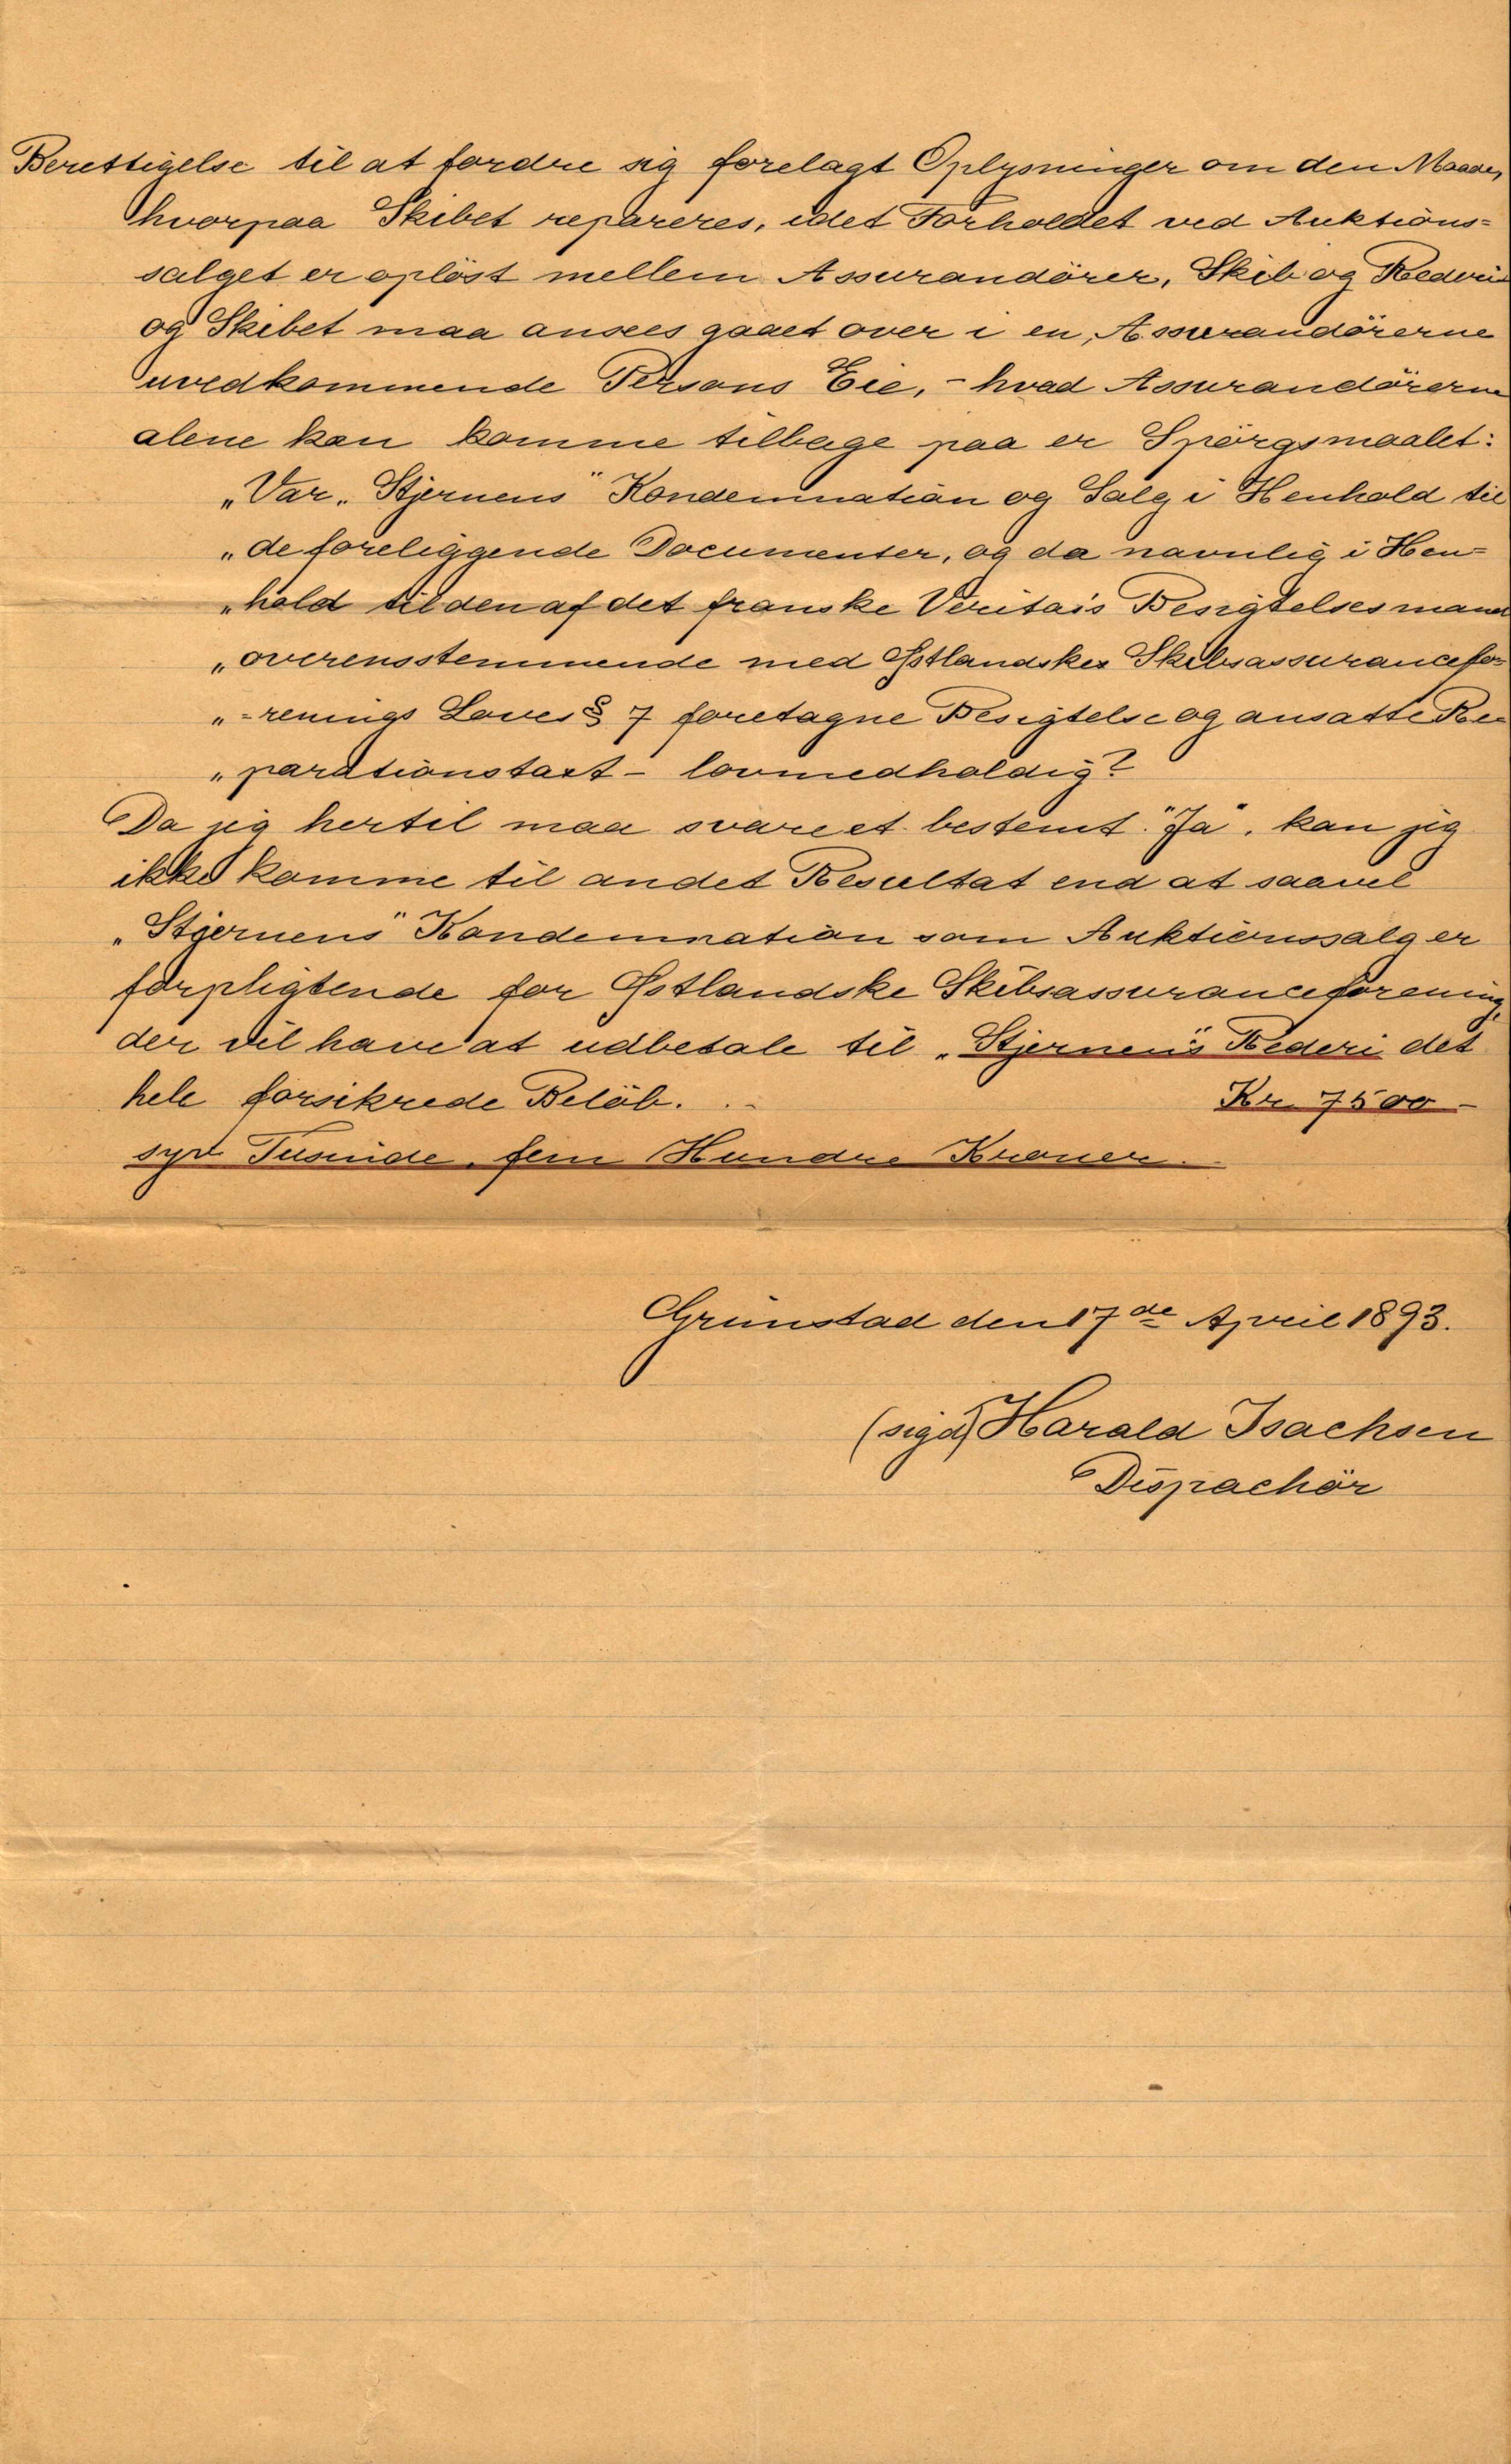 Berettigelse til at fordre sig forelagt Oplysninger om den Maade,
hvorpaa Skibet repareres, idet Forholdet ved Auktions=
salget er opløst mellem Assurandörer, Skib og Rederi
og Skibet maa ansees gaaet over i en, Assurandörerne
uvedkommende Persons Eie, - hvad Assurandörerne
alene kan komme tilbage paa er Spörgsmaalet:
„Var „Stjernens" Kondemnation og Salg i Henhold til
„de foreliggende Documenter, og da navnlig i Hen=
„hold til den af det franske Veritas's Besigtelsesmand
„overensstemmende med Østlandskes Skibsassurancefo=
„=renings Loves § 7 foretagne Besigtelse og ansatte Re=
„parationstaxt - lovmedholdig?
Da jeg hertil maa svare et bestemt "Ja", kan jeg
ikke komme til andet Resultat end at saavel
„Stjernens" Kondemnation som Auktionssalg er
forpligtende for Østlandske Skibsassuranceforening,
der vil have at udbetale til „Stjernen"s Rederi det
hele forsikrede Belöb. - Kr. 7500 -
syv Tusinde, fem Hundre Kroner. -
Grimstad den 17de April 1893.
(sigd) Harald Isachsen
Dispachör